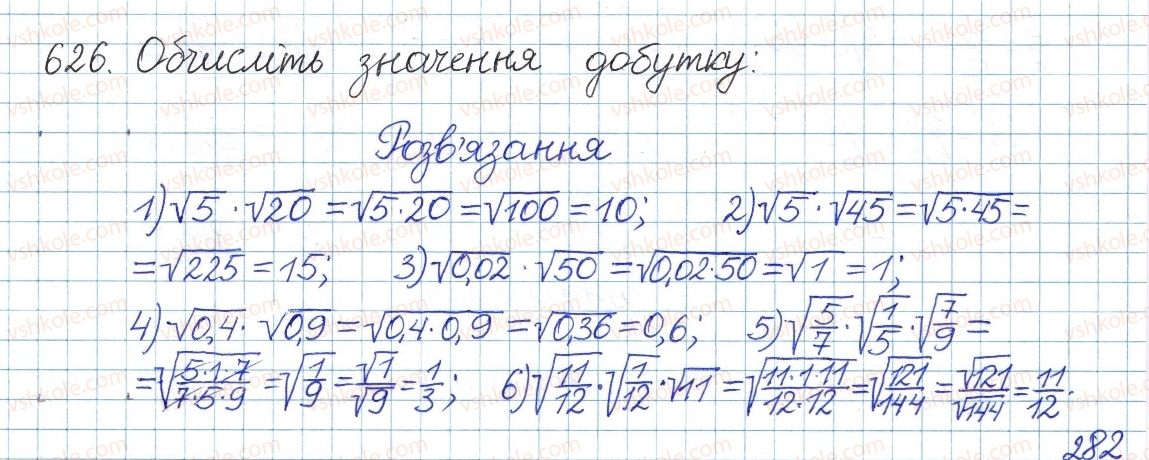 626. Обчисліть значення добутку:
Розв'язання
1) √5 · √20 = √(5·20) = √100 = 10; 2) √5 · √45 = √(5·45) =
= √225 = 15; 3) √0,02 · √50 = √(0,02·50) = √1 = 1;
4) √0,4 · √0,9 = √(0,4·0,9) = √0,36 = 0,6; 5) √(5/7) · √(1/5) · √(7/9) =
= √((5·1·7)/(7·5·9)) = √(1/9) = √1/√9 = 1/3; 6) √(11/12) · √(1/12) · √11 = √((11·1·11)/(12·12)) = √(121/144) = √121/√144 = 11/12.
282